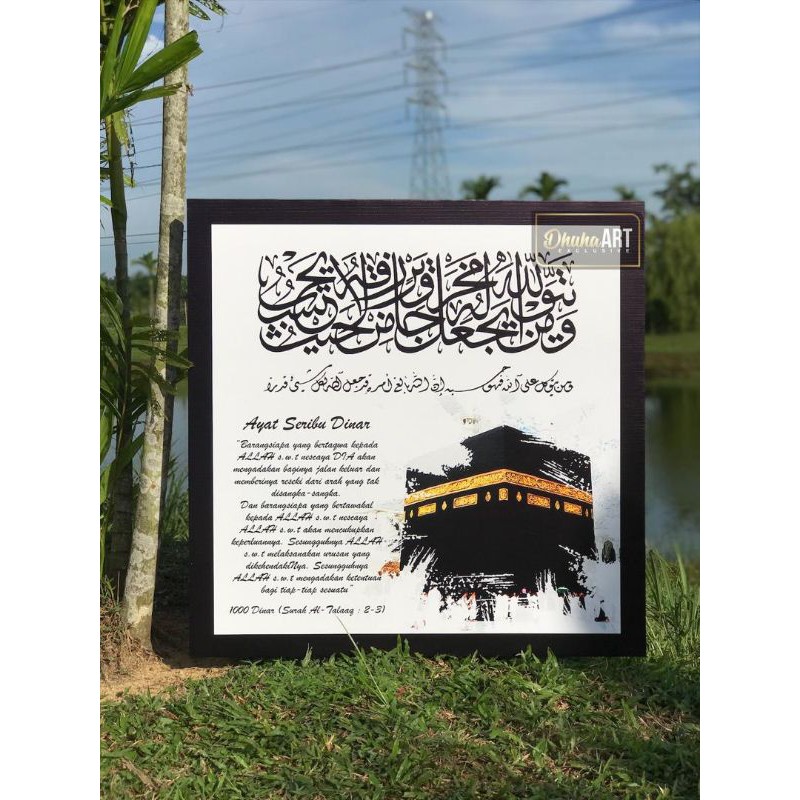 Dhuha ART
EXCLUSIVE
ومن يتق الله يجعل له مخرجا ويرزقه من حيث لا يحتسب
ومن يتوكل على الله فهو حسبه إن الله بالغ أمره قد جعل الله لكل شيء قدرا
Ayat Seribu Dinar
"Barangsiapa yang bertaqwa kepada
ALLAH s.w.t nescaya DIA akan
mengadakan baginya jalan keluar dan
memberinya rezeki dari arah yang tak
disangka-sangka.
Dan barangsiapa yang bertawakal
kepada ALLAH s.w.t nescaya
ALLAH s.w.t akan mencukupkan
keperluannya. Sesungguhnya ALLAH
s.w.t melaksanakan urusan yang
dikehendakiNya. Sesungguhnya
ALLAH s.w.t mengadakan ketentuan
bagi tiap-tiap sesuatu"
1000 Dinar (Surah Al-Talaaq : 2-3)